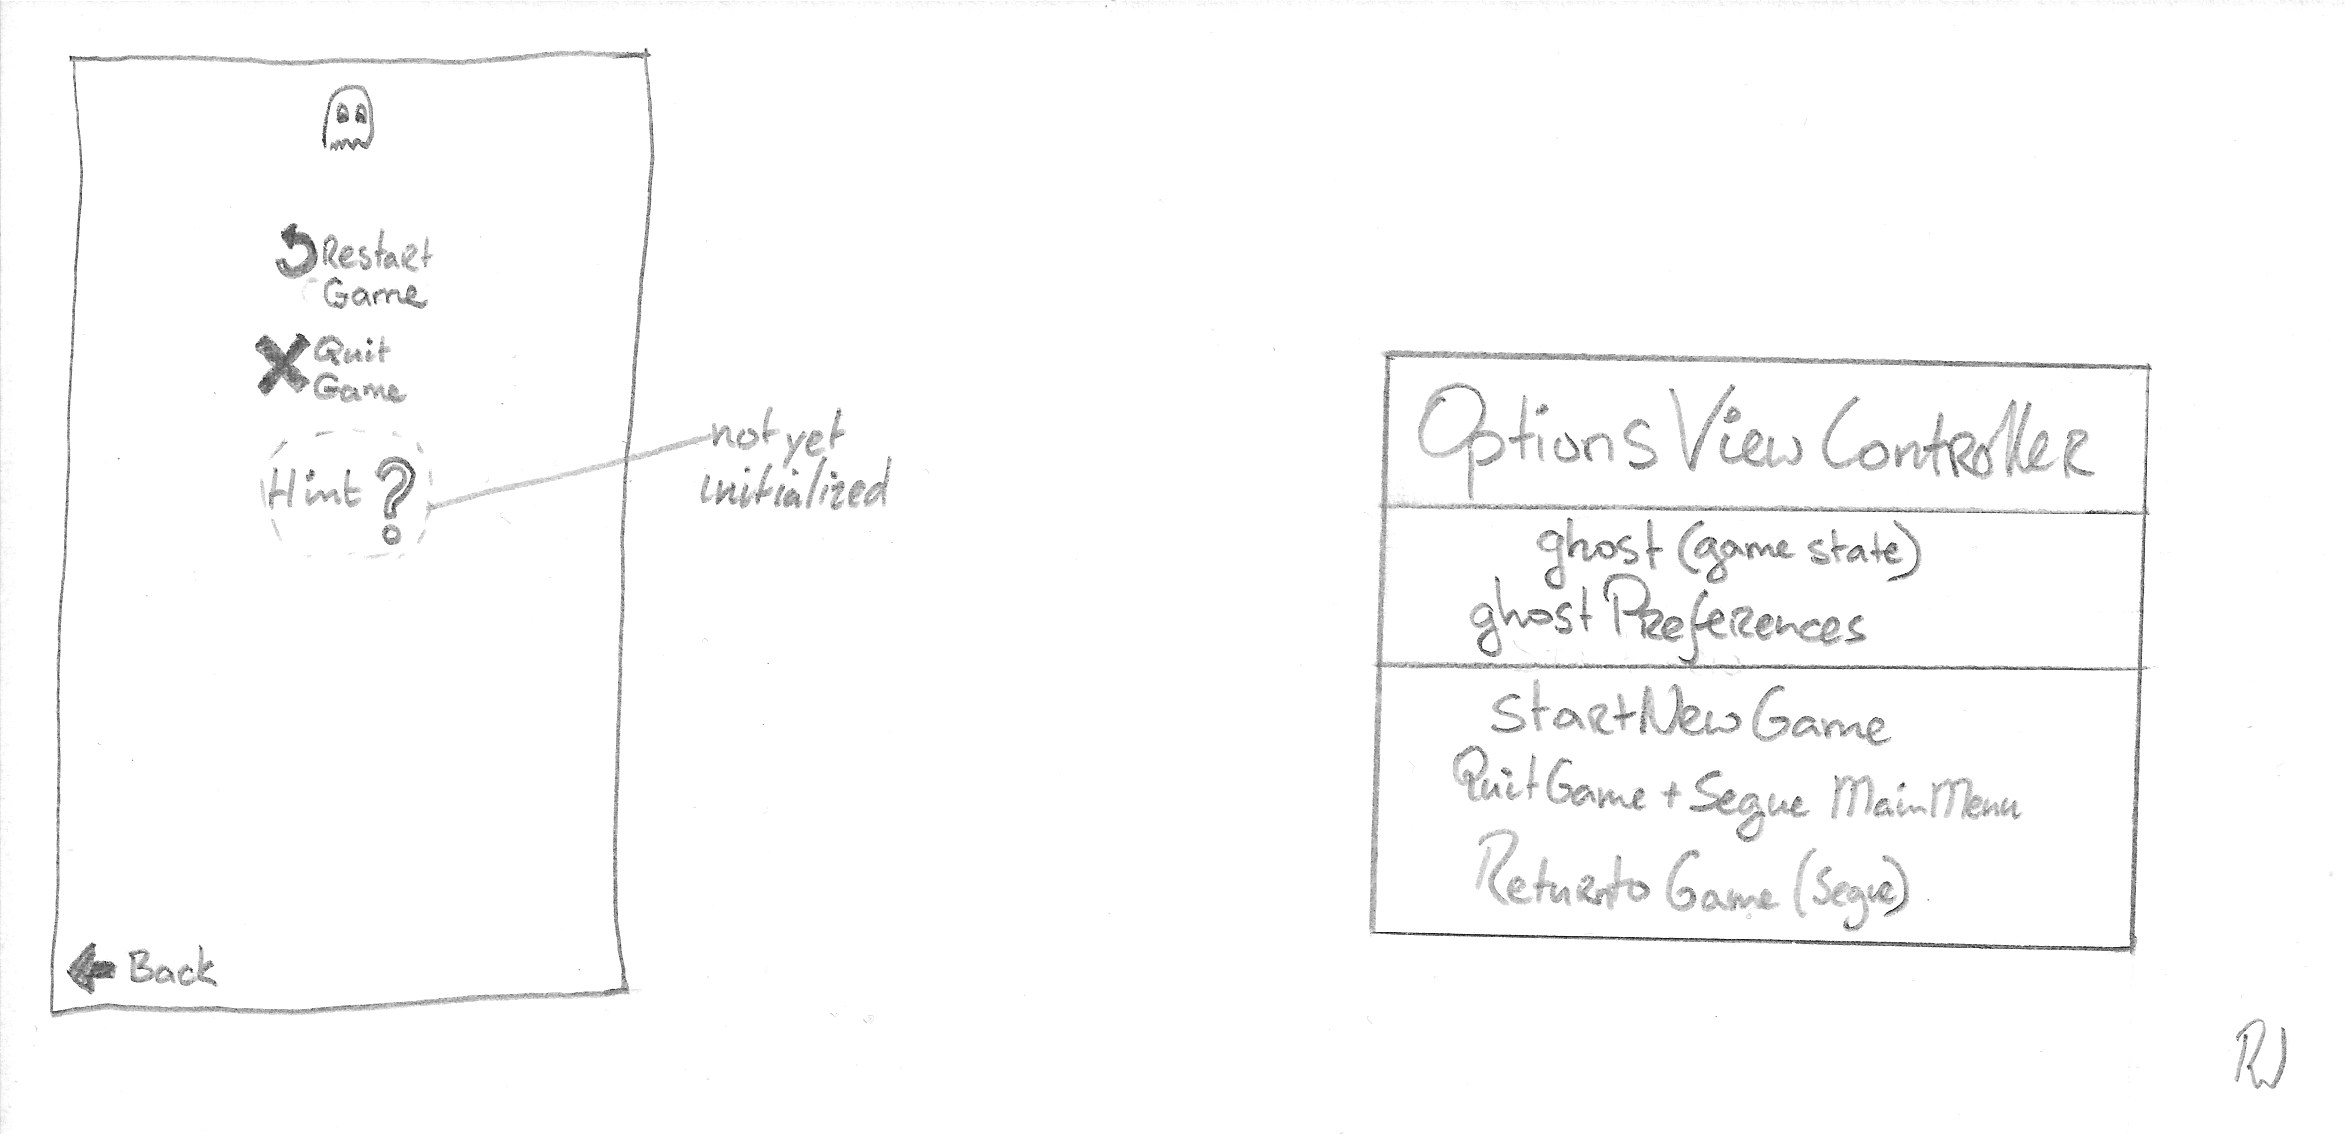 Restart
Game
Quit
Game
Hint ?
not yet
initialized
Back
Options View Controller
ghost (game state)
ghost Preferences
StartNewGame
QuitGame + Segue MainMenu
Returnto Game (Segue)